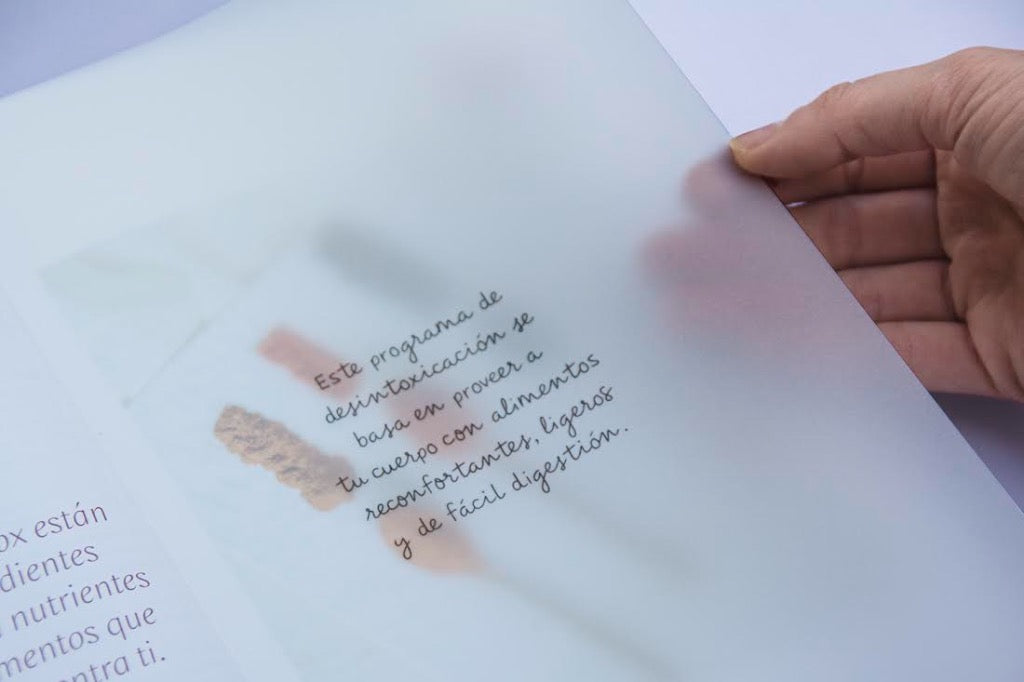 Este programa de
desintoxicación se
basa en proveer a
tu cuerpo con alimentos
reconfortantes, ligeros
y de fácil digestión.
están
nutrientes
que
ti.